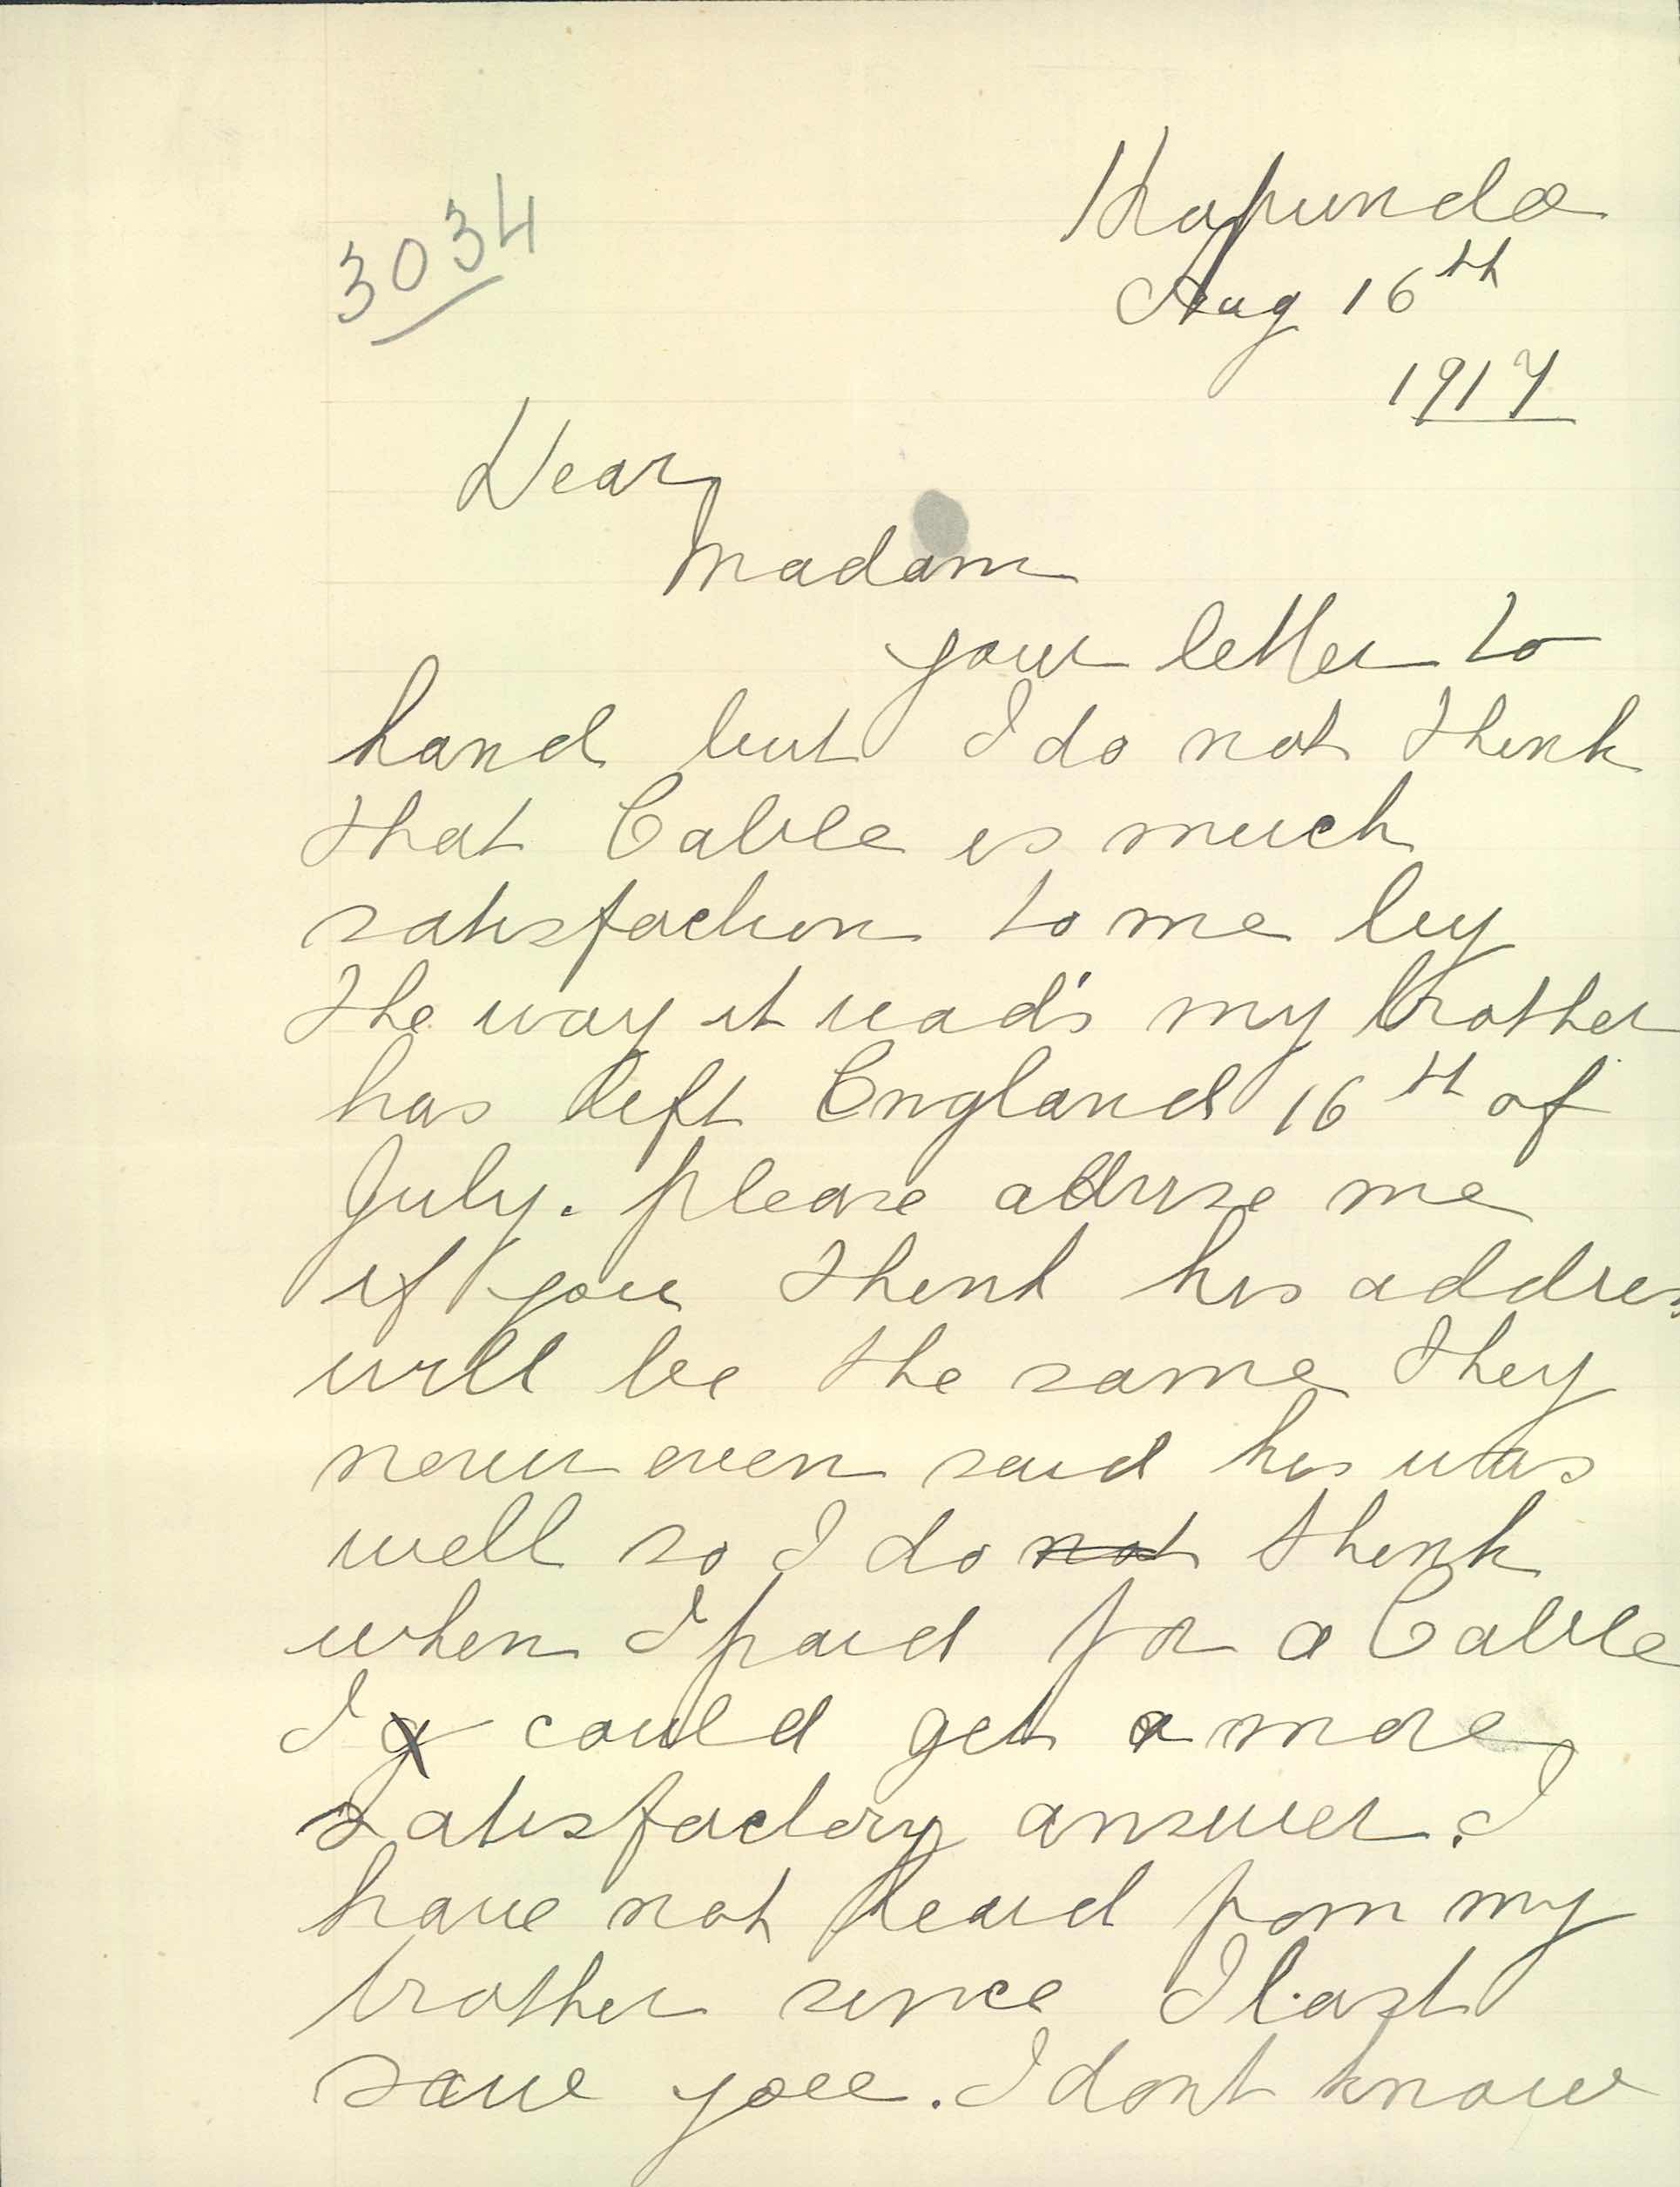 3034
Kapunda
Aug 16th
1917
Dear
Madam
your letter to
hand but I do not think
that Cable is much
satisfaction to me by
the way it read's my brother
has left England 16th of
July. please advise me
if you think his address
will be the same they
never even said his was
well so I do not think
when I paid for a Cable
I g could get a more
satisfactory answer. I
have not heard from my
brother since I last
saw you. I dont know